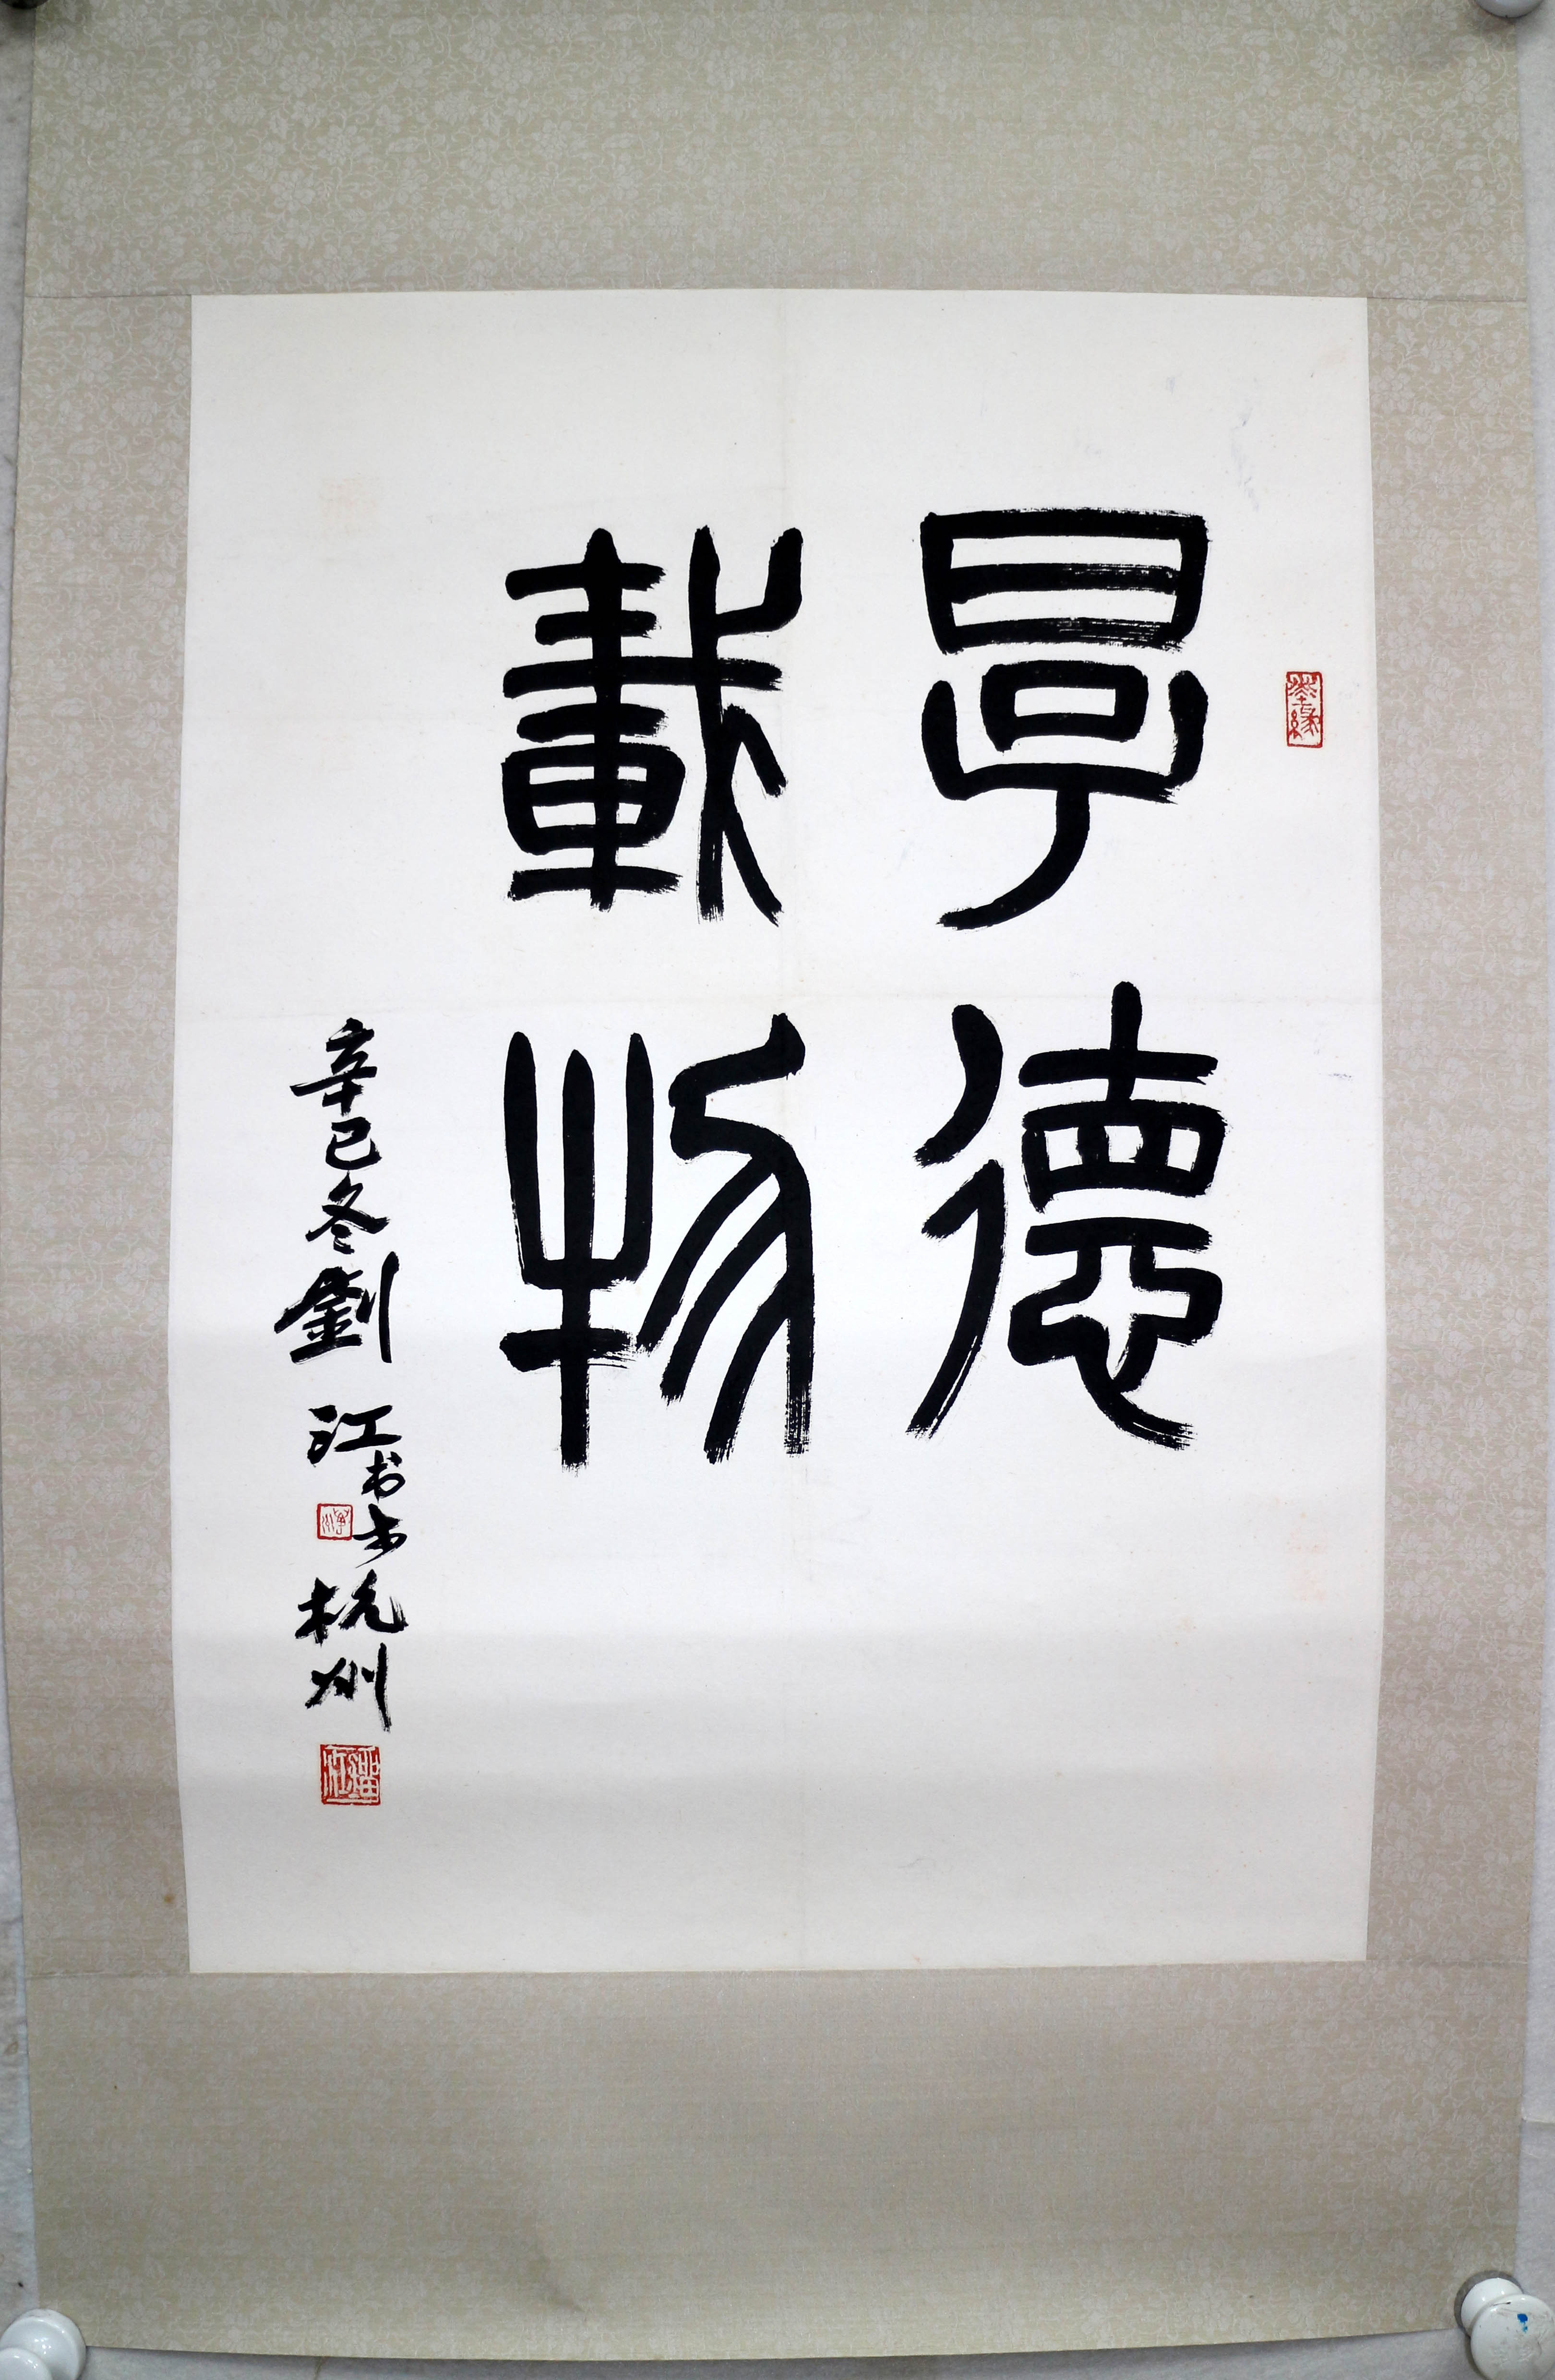 厚德
載物
辛巳冬劉江书于杭州